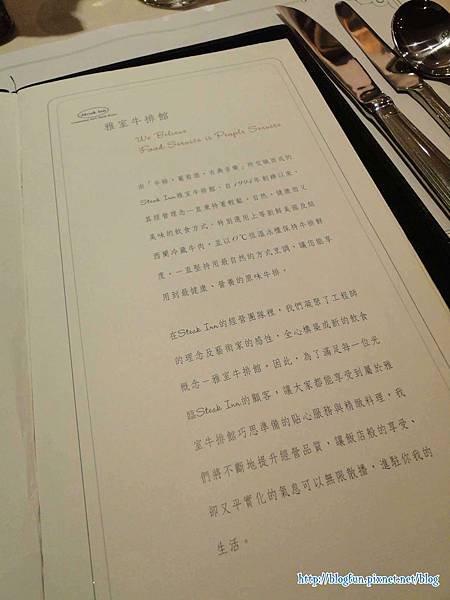 Steak Inn
雅室牛排館
We Believe
Food Service is People Service
由「牛排，葡萄酒，古典音樂」所交織而成的
Steak Inn雅室牛排館，自1994年創辦以來，
其經營理念一直秉持著輕鬆，自然，健康而又
美味的飲食方式，特別選用上等割鮮美國及紐
西蘭冷藏牛肉，並以0℃恆溫冰櫃保持牛排鮮
度，一直堅持用最自然的方式烹調，讓您能享
用到最健康、營養的原味牛排。
在Steak Inn的經營團隊裡，我們凝聚了工程師
的理念及藝術家的感性，全心構築成新的飲食
概念－雅室牛排館。因此，為了滿足每一位光
臨Steak Inn的顧客，讓大家都能享受到屬於雅
室牛排館巧思準備的貼心服務與精緻料理，我
們將不斷地提升經營品質，讓飯店般的享受，
卻又平實化的氣息可以無限散播，進駐你我的
生活。
http://blogfun.pixnet.net/blog